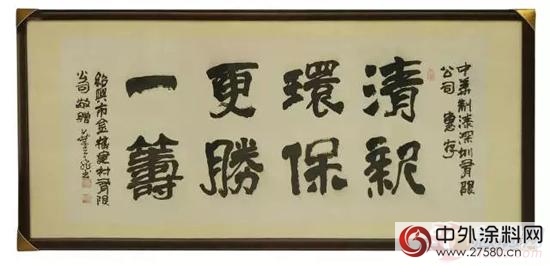 中華制漆深圳有限
公司 惠存
清新
環保
更勝
一籌
紹興市金建材有限
公司敬贈
中外涂料网
www.27580.cn